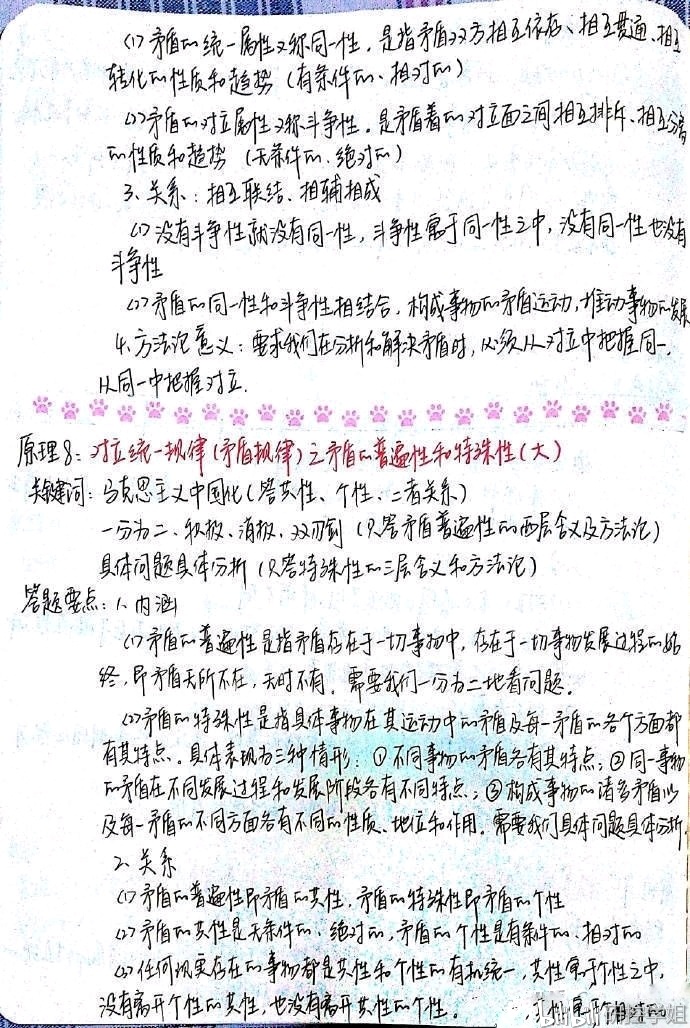 (1)矛盾的统一属性又称同一性，是指矛盾双方相互依存、相互贯通、相互
转化的性质和趋势（有条件的、相对的）
(2)矛盾的对立属性又称斗争性，是矛盾着的对立面之间相互排斥、相互分离
的性质和趋势（无条件的、绝对的）
3、关系：相互联结、相辅相成
(1)没有斗争性就没有同一性，斗争性寓于同一性之中，没有同一性也没有
斗争性
(2)矛盾的同一性和斗争性相结合，构成事物的矛盾运动，推动事物的发展
4、方法论意义：要求我们在分析和解决矛盾时，必须从对立中把握同一，
从同一中把握对立.
原理8：对立统一规律（矛盾规律）之矛盾的普遍性和特殊性（大）
关键词：马克思主义中国化（答共性、个性、二者关系）
一分为二、积极、消极、双刃剑（只答矛盾普遍性的两层含义及方法论）
具体问题具体分析（只答特殊性的三层含义和方法论）
答题要点：1、内涵
(1)矛盾的普遍性是指矛盾存在于一切事物中，存在于一切事物发展过程的始
终，即矛盾无所不在，无时不有。需要我们一分为二地看问题。
(2)矛盾的特殊性是指具体事物在其运动中的矛盾及每一矛盾的各个方面都
有其特点。具体表现为三种情形：①不同事物的矛盾各有其特点；②同一事物
的矛盾在不同发展过程和发展阶段各有不同特点；③构成事物的诸多矛盾以
及每一矛盾的不同方面各有不同的性质、地位和作用。需要我们具体问题具体分析.
2、关系
(1)矛盾的普遍性即矛盾的共性，矛盾的特殊性即矛盾的个性
(2)矛盾的共性是无条件的、绝对的，矛盾的个性是有条件的、相对的
(3)任何现实存在的事物都是共性和个性的有机统一，共性寓于个性之中，
没有离开个性的共性，也没有离开共性的个性。